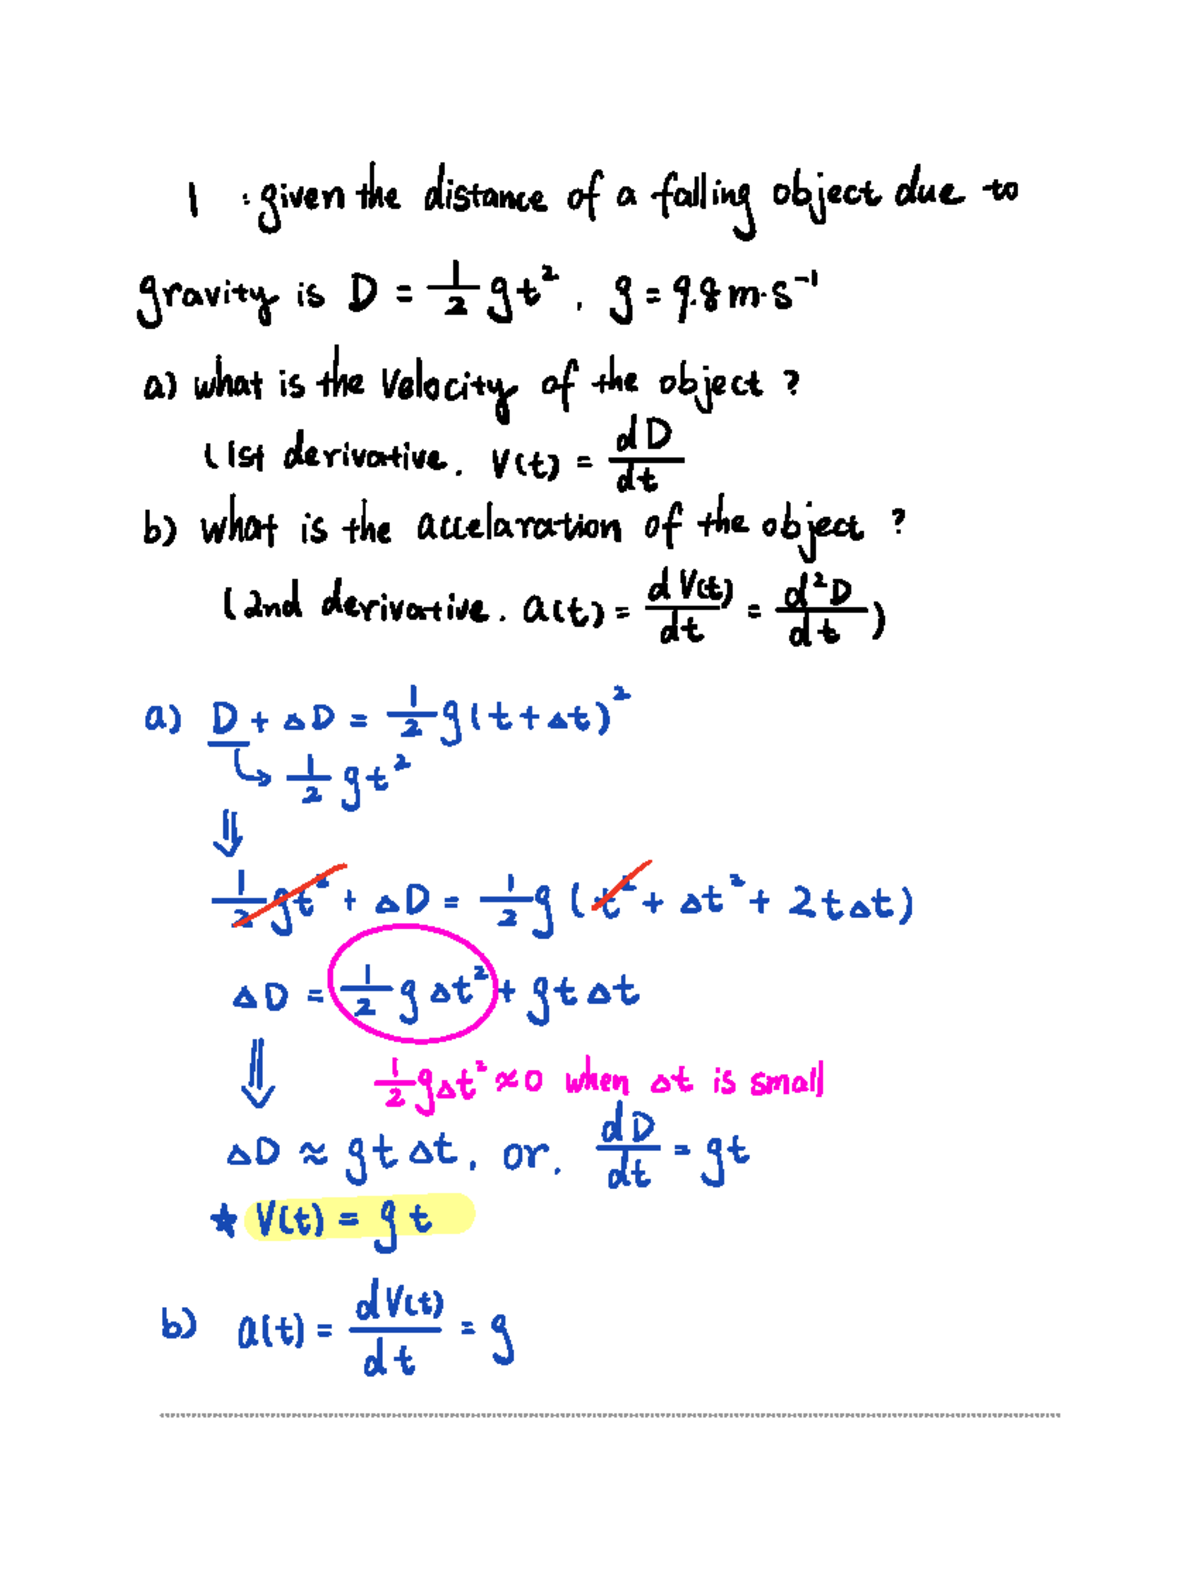 1 : given the distance of a falling object due to
gravity is D = 1/2 gt², g = 9.8 m·s⁻¹
a) what is the Velocity of the object ?
(1st derivative. V(t) = dD/dt
b) what is the accelaration of the object ?
(2nd derivative. a(t) = dV(t)/dt = d²D/dt )
a) D + △D = 1/2 g(t+△t)²
↳ 1/2 gt²
⇓
1/2 gt² + △D = 1/2 g (t² + △t² + 2t△t)
△D = 1/2 g△t² + gt△t
⇓ 1/2 g△t² ≈ 0 when △t is small
△D ≈ gt△t, or. dD/dt = gt
★ V(t) = gt
b) a(t) = dV(t)/dt = g